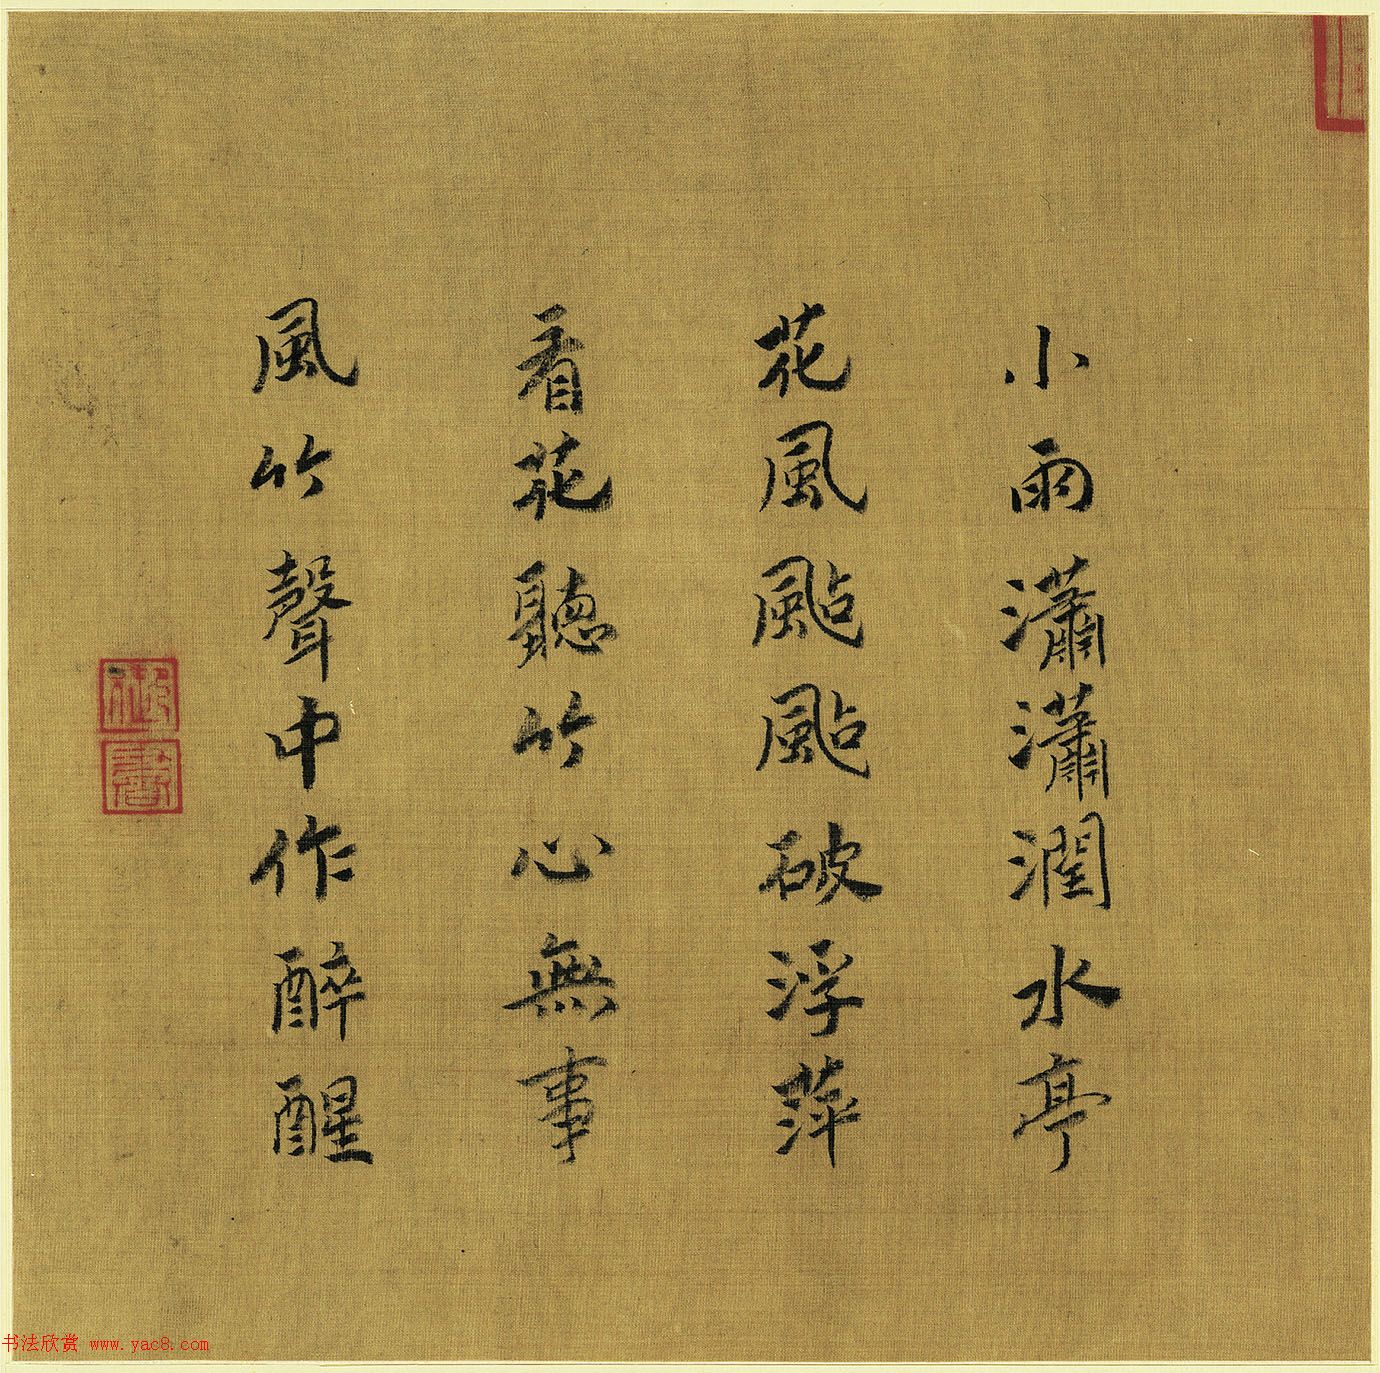 小雨瀟瀟潤水亭
花風颭颭破浮萍
看花聽竹心無事
風竹聲中作醉醒
御書
书法欣赏 www.yac8.com